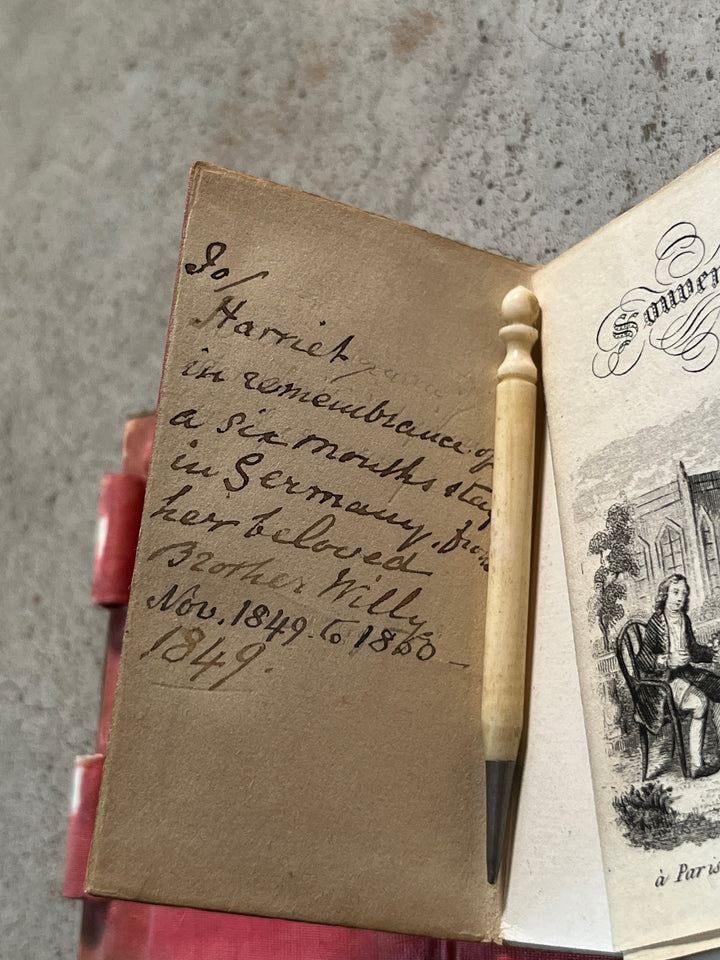 To/
Harriet
in remembrance of
a six months stay
in Germany, from
her beloved
Brother Willy
Nov. 1849. to 1850 –
1849.
Souven
à Paris